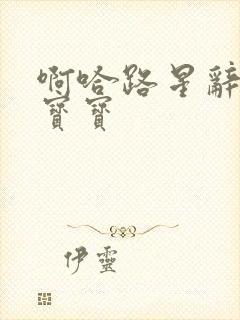 啊哈路星辭
寶寶
伊靈